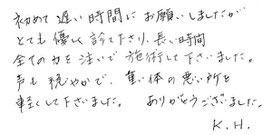 初めて遅い時間にお願いしましたが
とても優しく診て下さり、長い時間
全ての力を注いで施術して下さいました。
声も穏やかで、身体の悪い所を
軽くして下さいました。 ありがとうございました。
K.H.